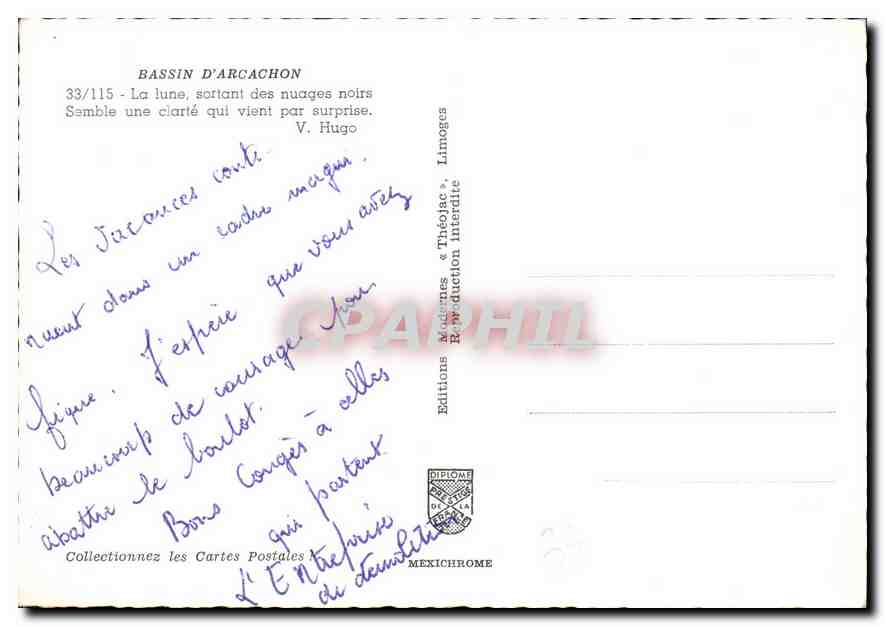 BASSIN D'ARCACHON
33/115 - La lune, sortant des nuages noirs
Semble une clarté qui vient par surprise.
V. Hugo
Les Vacances conti-
nuent dans un cadre magni-
fique. J'espère que vous avez
beaucoup de courage pour
abattre le boulot.
Bons Congès à celles
qui partent.
L'Entreprise
de demolition
Collectionnez les Cartes Postales !
Editions Modernes « Théojac », Limoges
Reproduction interdite
CPAPHIL
DIPLOME
PRESTIGE
DE LA
FRANCE
MEXICHROME